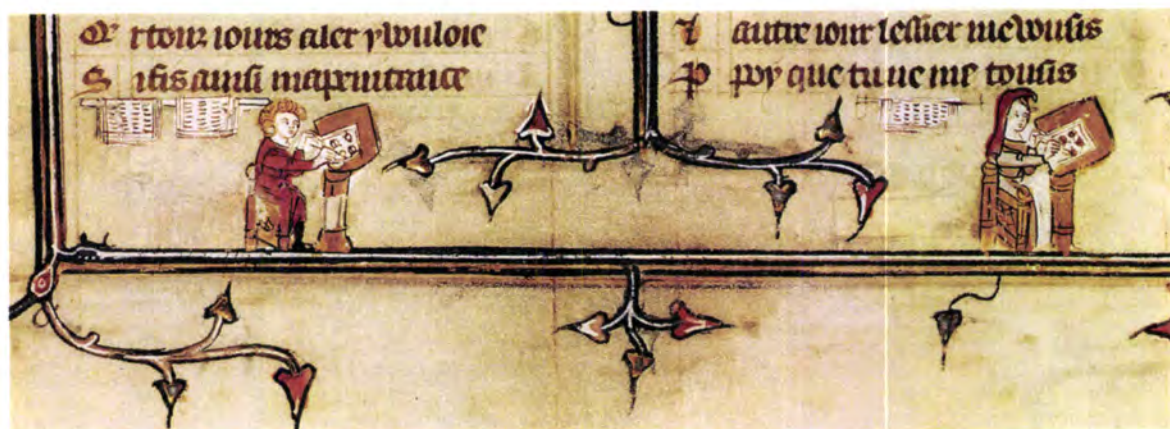 Et tour iours aler y vouloie
S ifis ainsi ma penitance
L autre iour lessier me vousis
P poy que tu ne me tousis